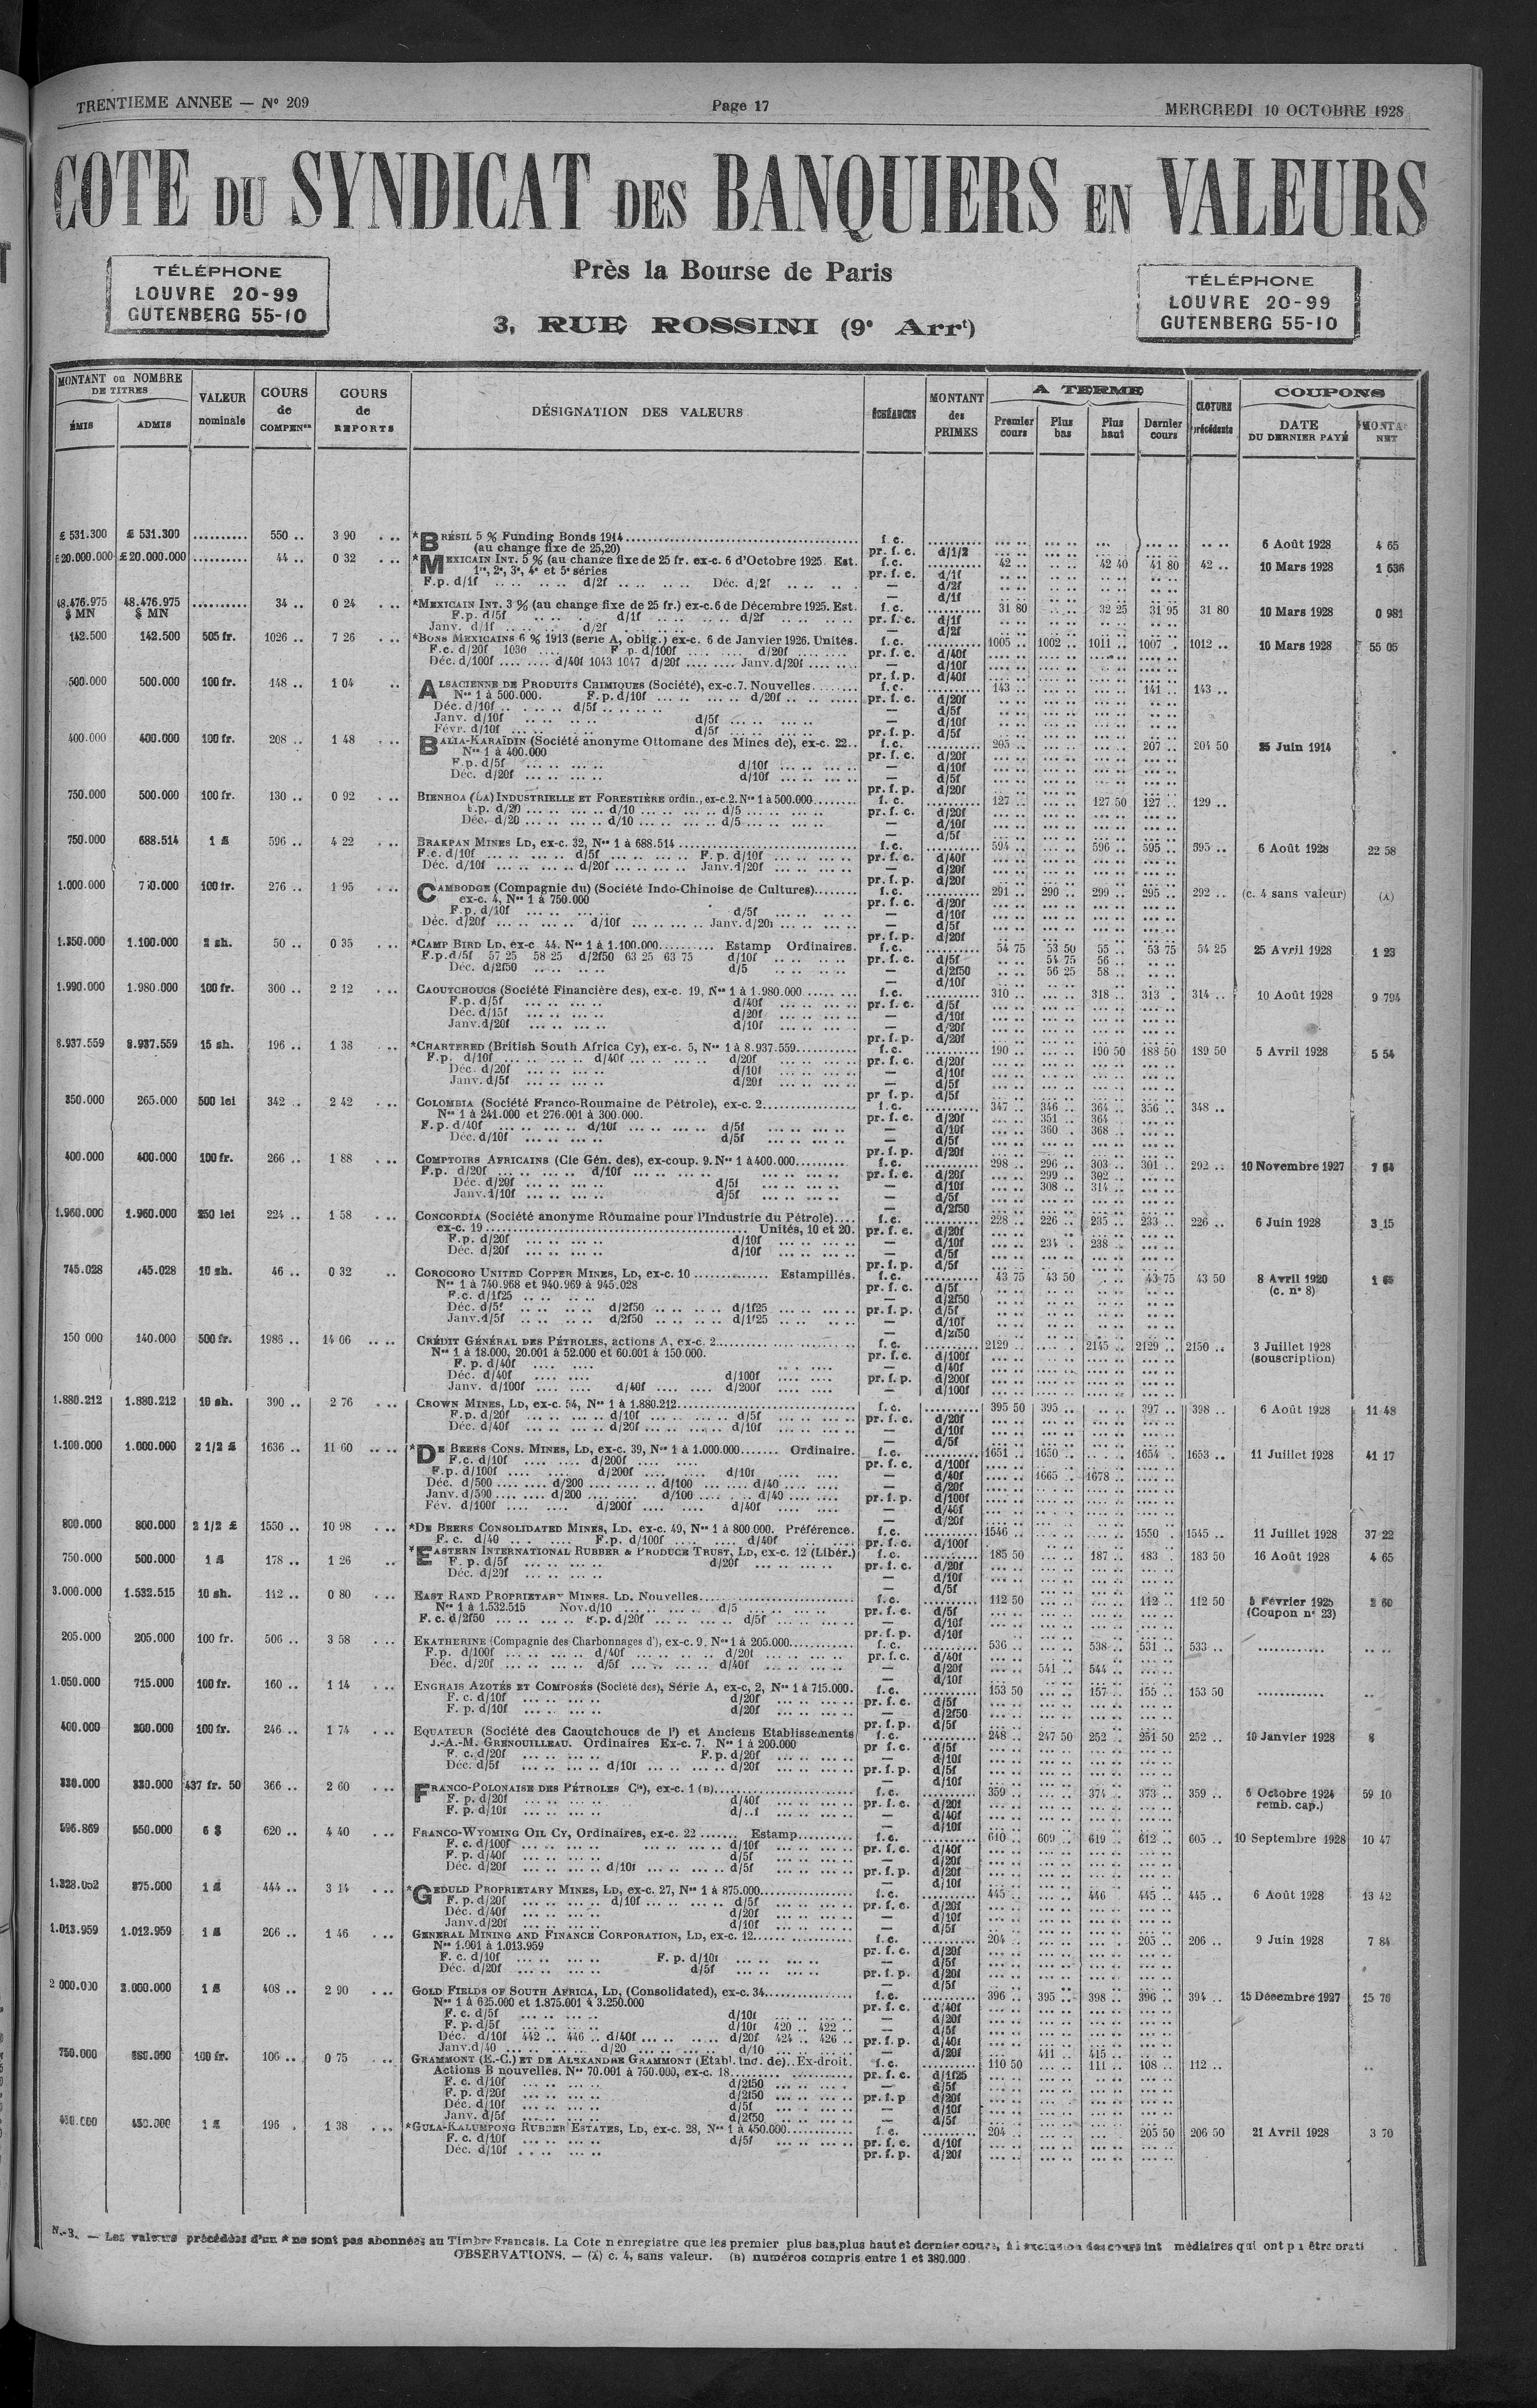 TRENTIEME ANNEE — No 209
Page 17
MERCREDI 10 OCTOBRE 1928
COTE DU SYNDICAT DES BANQUIERS EN VALEURS
TÉLÉPHONE
LOUVRE 20-99
GUTENBERG 55-10
Près la Bourse de Paris
3, RUE ROSSINI (9e Arrt)
TÉLÉPHONE
LOUVRE 20-99
GUTENBERG 55-10
MONTANT ou NOMBRE DE TITRES
ÉMIS ADMIS
VALEUR nominale
COURS de COMPENon
COURS de REPORTS
DÉSIGNATION DES VALEURS
ÉCHÉANCES
MONTANT des PRIMES
A TERME
Premier cours Plus bas Plus haut Dernier cours
CLOTURE précédente
COUPONS
DATE DU DERNIER PAYÉ
NET
£ 531.300 £ 531.300 .......... 550 .. 3 90 *BRÉSIL 5 % Funding Bonds 1914 f. c. 6 Août 1928 4 65
(au change fixe de 25,20) pr. f. c. d/1/2
£20.000.000 £20.000.000 .......... 44 .. 0 32 *MEXICAIN INT. 5 % (au change fixe de 25 fr. ex-c. 6 d'Octobre 1925. Est. f. c. 42 .. 42 40 41 80 42 .. 10 Mars 1928 1 636
1re, 2e, 3e, 4e et 5e séries pr. f. c. d/1f
F.p. d/1f d/2f Déc. d/2f — d/2f
48.476.975 $ MN 48.476.975 $ MN .......... 34 .. 0 24 *MEXICAIN INT. 3 % (au change fixe de 25 fr.) ex-c. 6 de Décembre 1925. Est. f. c. 31 80 32 25 31 95 31 80 10 Mars 1928 0 981
F.p. d/5f d/1f d/2f pr. f. c. d/1f
Janv. d/1f d/2f — d/2f
142.500 142.500 505 fr. 1026 .. 7 26 *BONS MEXICAINS 6 % 1913 (serie A, oblig.) ex-c. 6 de Janvier 1926. Unités. f. c. 1005 .. 1002 .. 1011 .. 1007 . 1012 .. 10 Mars 1928 55 05
F.c. d/20f 1030 F p. d/100f d/20f pr. f. c. d/40f
Déc. d/100f d/40f 1043 1047 d/20f Janv. d/20f — d/10f
pr. f. p. d/40f
500.000 500.000 100 fr. 148 .. 1 04 ALSACIENNE DE PRODUITS CHIMIQUES (Société), ex-c. 7. Nouvelles f. c. 143 .. 141 .. 143 ..
Nos 1 à 500.000. F. p. d/10f d/20f pr. f. c. d/20f
Déc. d/10f d/5f — d/5f
Janv. d/10f d/5f — d/10f
Févr. d/10f d/5f pr. f. p. d/5f
400.000 400.000 100 fr. 208 .. 1 48 BALIA-KARAÏDIN (Société anonyme Ottomane des Mines de), ex-c. 22 f. c. 205 .. 207 .. 204 50 25 Juin 1914
Nos 1 à 400.000 pr. f. c. d/20f
F.p. d/5f d/10f — d/10f
Déc. d/20f d/10f — d/5f
pr. f. p. d/20f
750.000 500.000 100 fr. 130 .. 0 92 BIENHOA (LA) INDUSTRIELLE ET FORESTIÈRE ordin., ex-c. 2. Nos 1 à 500.000 f. c. 127 .. 127 50 127 .. 129 ..
F.p. d/20 d/10 d/5 pr. f. c. d/20f
Déc. d/20 d/10 d/5 — d/10f
— d/5f
750.000 688.514 1 £ 596 .. 4 22 BRAKPAN MINES LD, ex-c. 32, Nos 1 à 688.514 f. c. 594 .. 596 .. 595 .. 595 .. 6 Août 1928 22 58
F.c. d/10f d/5f F. p. d/10f pr. f. c. d/40f
Déc. d/10f d/20f Janv. d/20f — d/20f
pr. f. p. d/20f
1.000.000 750.000 100 fr. 276 .. 1 95 CAMBODGE (Compagnie du) (Société Indo-Chinoise de Cultures) f. c. 291 .. 290 .. 299 .. 295 .. 292 .. (c. 4 sans valeur) (A)
ex-c. 4, Nos 1 à 750.000 pr. f. c. d/20f
F.p. d/10f d/5f — d/10f
Déc. d/20f d/10f Janv. d/20f — d/5f
pr. f. p. d/20f
1.350.000 1.100.000 2 sh. 50 .. 0 35 *CAMP BIRD LD, ex-c 44. Nos 1 à 1.100.000 Estamp Ordinaires. f. c. 54 75 53 50 55 .. 53 75 54 25 25 Avril 1928 1 23
F.p. d/5f 57 25 58 25 d/2f50 63 25 63 75 d/10f pr. f. c. d/5f 54 75 56 ..
Déc. d/2f50 d/5 — d/2f50 56 25 58 ..
— d/10f
1.990.000 1.980.000 100 fr. 300 .. 2 12 CAOUTCHOUCS (Société Financière des), ex-c. 19, Nos 1 à 1.980.000 f. c. 310 .. 318 .. 313 . 314 .. 10 Août 1928 9 794
F.p. d/5f d/40f pr. f. c. d/5f
Déc. d/15f d/20f — d/10f
Janv. d/20f d/10f — d/20f
pr. f. p. d/20f
8.937.559 8.937.559 15 sh. 196 .. 1 38 *CHARTERED (British South Africa Cy), ex-c. 5, Nos 1 à 8.937.559 f. c. 190 .. 190 50 188 50 189 50 5 Avril 1928 5 54
F.p. d/10f d/40f d/20f pr. f. c. d/20f
Déc. d/20f d/10f — d/10f
Janv. d/5f d/20f — d/5f
pr f. p. d/5f
350.000 265.000 500 lei 342 .. 2 42 COLOMBIA (Société Franco-Roumaine de Pétrole), ex-c. 2 f. c. 347 .. 346 .. 364 .. 356 .. 348 ..
Nos 1 à 241.000 et 276.001 à 300.000. pr. f. c. d/20f 351 .. 364 ..
F. p. d/40f d/10f d/5f — d/10f 360 .. 368 ..
Déc. d/10f d/5f — d/5f
pr. f. p. d/20f
400.000 400.000 100 fr. 266 .. 1 88 COMPTOIRS AFRICAINS (Cie Gén. des), ex-coup. 9. Nos 1 à 400.000 f. c. 298 .. 296 .. 303 .. 301 .. 292 .. 10 Novembre 1927
F.p. d/20f d/10f pr. f. c. d/20f 299 .. 302 ..
Déc. d/20f d/5f — d/10f 308 .. 314 ..
Janv. d/10f d/5f — d/5f
— d/2f50
1.960.000 1.960.000 250 lei 224 .. 1 58 CONCORDIA (Société anonyme Roumaine pour l'Industrie du Pétrole) f. c. 228 .. 226 .. 235 .. 233 .. 226 .. 6 Juin 1928 3 15
ex-c. 19 Unités, 10 et 20. pr. f. c. d/20f
F.p. d/20f d/10f — d/10f 234 . 238 ..
Déc. d/20f d/10f — d/5f
pr. f. p. d/5f
745.028 745.028 10 sh. 46 .. 0 32 COROCORO UNITED COPPER MINES, LD, ex-c. 10 Estampillés. f. c. 43 75 43 50 43 75 43 50 8 Avril 1920
Nos 1 à 740.968 et 940.969 à 945.028 pr. f. c. d/5f (c. no 8)
F.c. d/1f25 — d/2f50
Déc. d/5f d/2f50 d/1f25 pr. f. p. d/5f
Janv. d/5f d/2f50 d/1f25 — d/10f
— d/2f50
150 000 140.000 500 fr. 1986 .. 14 06 CRÉDIT GÉNÉRAL DES PÉTROLES, actions A, ex-c. 2 f. c. 2129 .. 2145 .. 2129 .. 2150 .. 3 Juillet 1928
Nos 1 à 18.000, 20.001 à 52.000 et 60.001 à 150 000. pr. f. c. d/100f (souscription)
F. p. d/40f — d/40f
Déc. d/40f d/100f pr. f. p. d/200f
Janv. d/100f d/40f d/200f — d/100f
1.880.212 1.880.212 10 sh. 390 .. 2 76 CROWN MINES, LD, ex-c. 54, Nos 1 à 1.880.212 f. c. 395 50 395 .. 397 .. 398 .. 6 Août 1928 11 48
F.p. d/20f d/10f d/5f pr. f. c. d/20f
Déc. d/40f d/20f d/10f — d/10f
— d/5f
1.100.000 1.000.000 2 1/2 £ 1636 .. 11 60 *DE BEERS CONS. MINES, LD, ex-c. 39, Nos 1 à 1.000.000 Ordinaire. f. c. 1651 .. 1650 .. 1654 .. 1653 .. 11 Juillet 1928 41 17
F.c. d/10f d/200f pr. f. c. d/100f
F.p. d/100f d/200f d/10f — d/40f 1665 .. 1678 ..
Déc. d/500 d/200 d/100 d/40 — d/20f
Janv. d/500 d/200 d/100 d/40 pr. f. p. d/100f
Fév. d/100f d/200f d/40f — d/40f
— d/20f
800.000 800.000 2 1/2 £ 1550 .. 10 98 *DE BEERS CONSOLIDATED MINES, LD, ex-c. 49, Nos 1 à 800.000. Préférence. f. c. 1546 .. 1550 .. 1545 .. 11 Juillet 1928 37 22
F. c. d/40 F.p. d/100f d/40f pr. f. c. d/100f
750.000 500.000 1 £ 178 .. 1 26 *EASTERN INTERNATIONAL RUBBER & PRODUCE TRUST, LD, ex-c. 12 (Libér.) f. c. 185 50 187 .. 183 . 183 50 16 Août 1928 4 65
F. p. d/5f d/20f pr. f. c. d/20f
Déc. d/20f — d/10f
— d/5f
3.000.000 1.532.515 10 sh. 112 .. 0 80 EAST RAND PROPRIETARY MINES. LD, Nouvelles f. c. 112 50 112 .. 112 50 5 Février 1925 2 60
Nos 1 à 1.532.515 Nov. d/10 d/5 pr. f. c. d/5f (Coupon no 23)
F. c. d/2f50 F.p. d/20f d/5f — d/10f
pr. f. p. d/10f
205.000 205.000 100 fr. 506 .. 3 58 EKATHERINE (Compagnie des Charbonnages d'), ex-c. 9. Nos 1 à 205.000 f. c. 536 .. 538 .. 531 .. 533 ..
F.p. d/100f d/40f d/20f pr. f. c. d/40f
Déc. d/20f d/5f d/40f — d/20f 541 .. 544 ..
— d/10f
1.050.000 715.000 100 fr. 160 .. 1 14 ENGRAIS AZOTÉS ET COMPOSÉS (Société des), Série A, ex-c, 2, Nos 1 à 715.000. f. c. 153 50 157 .. 155 .. 153 50
F. c. d/10f d/20f pr. f. c. d/5f
F. p. d/10f d/20f — d/2f50
pr. f. p. d/5f
400.000 200.000 100 fr. 246 .. 1 74 EQUATEUR (Société des Caoutchoucs de l') et Anciens Etablissements f. c. 248 .. 247 50 252 .. 251 50 252 .. 10 Janvier 1928
J.-A.-M. GRENOUILLEAU. Ordinaires Ex-c. 7. Nos 1 à 200.000 pr f. c. d/5f
F. c. d/20f F.p. d/20f — d/10f
Déc. d/5f d/10f d/20f pr. f. p. d/5f
— d/10f
330.000 330.000 437 fr. 50 366 .. 2 60 FRANCO-POLONAISE DES PÉTROLES Cie), ex-c. 1 (B) f. c. 359 .. 374 .. 373 .. 359 .. 6 Octobre 1924 59 10
F. p. d/20f d/40f pr. f. c. d/20f remb. cap.)
F. p. d/10f d/..f — d/40f
— d/10f
596.869 550.000 6 $ 620 .. 4 40 FRANCO-WYOMING OIL CY, Ordinaires, ex-c. 22 Estamp f. c. 610 .. 609 .. 619 .. 612 .. 605 .. 10 Septembre 1928 10 47
F. c. d/100f d/10f pr. f. c. d/40f
F. p. d/40f d/5f — d/20f
Déc. d/20f d/10f d/5f pr. f. p. d/20f
— d/10f
1.328.052 875.000 1 £ 444 .. 3 14 *GEDULD PROPRIETARY MINES, LD, ex-c. 27, Nos 1 à 875.000 f. c. 445 .. 446 .. 445 .. 445 .. 6 Août 1928 13 42
F. p. d/20f d/10f d/5f pr. f. c. d/20f
Déc. d/40f d/20f — d/10f
Janv. d/20f d/10f — d/5f
1.013.959 1.012.959 1 £ 206 .. 1 46 GENERAL MINING AND FINANCE CORPORATION, LD, ex-c. 12 f. c. 204 .. 205 .. 206 .. 9 Juin 1928 7 84
Nos 1.001 à 1.013.959 pr. f. c. d/20f
F. c. d/10f F. p. d/10f — d/5f
Déc. d/20f d/5f pr. f. p. d/20f
— d/5f
2 000.000 2.000.000 1 £ 408 .. 2 90 GOLD FIELDS OF SOUTH AFRICA, LD, (Consolidated), ex-c. 34 f. c. 396 .. 395 .. 398 .. 396 .. 394 .. 15 Décembre 1927 15 76
Nos 1 à 625.000 et 1.875.001 à 3.250.000 pr. f. c. d/40f
F. c. d/5f d/10f — d/20f
F. p. d/5f d/10f 420 .. 422 .. — d/5f
Déc. d/10f 442 .. 446 .. d/40f d/20f 424 .. 426 .. pr. f. p. d/40f
Janv. d/40 d/20 d/10 — d/20f 411 .. 415 ..
750.000 100 fr. 106 .. 0 75 GRAMMONT (E.-C.) ET DE ALEXANDRE GRAMMONT (Etabl. Ind. de).. Ex-droit. f. c. 110 50 111 .. 108 .. 112 ..
Actions B nouvelles. Nos 70.001 à 750.000, ex-c. 18 pr. f. c. d/1f25
F. c. d/10f d/2f50 — d/5f
F. p. d/20f d/2f50 pr. f. p d/20f
Déc. d/10f d/5f — d/10f
Janv. d/5f d/2f50 — d/5f
450.000 450.000 1 £ 196 . 1 38 *GULA-KALUMPONG RUBBER ESTATES, LD, ex-c. 28, Nos 1 à 450.000 f. c. 204 .. 205 50 206 50 21 Avril 1928 3 70
F. c. d/10f d/5f pr. f. c. d/10f
Déc. d/10f pr. f. p. d/20f
N.-B. — Les valeurs précédées d'un * ne sont pas abonnées au Timbre Français. La Cote n enregistre que les premier plus bas, plus haut et dernier cours, à l'exclusion des cours int médiaires qui ont pu être prati
OBSERVATIONS. — (A) c. 4, sans valeur. (B) numéros compris entre 1 et 380.000